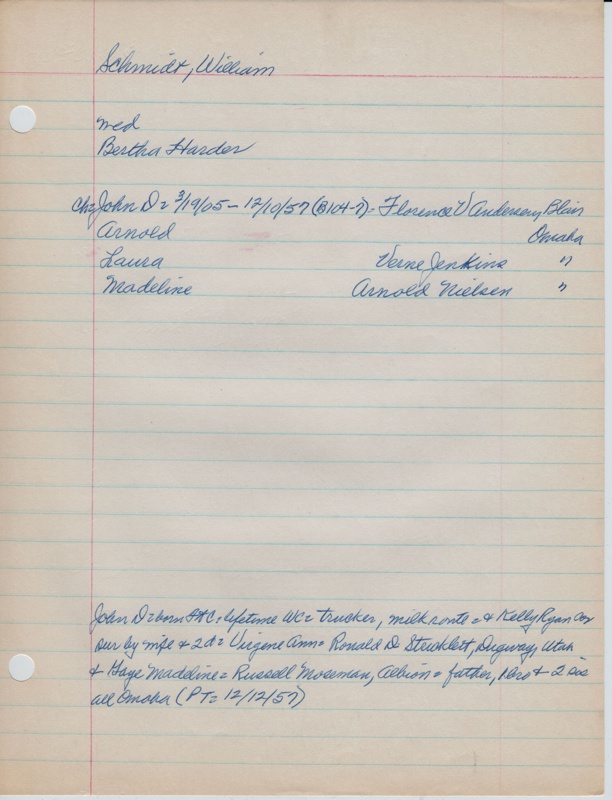 Schmidt, William
med
Bertha Harder
Ch= John D= 3/19/05 - 12/10/57 (B104-7)= Florence V Andersen, Blair
Arnold Omaha
Laura Verne Jenkins "
Madeline Arnold Nielsen "
John D= born = lifetime WC= trucker, milk route = & Kelly Ryan Co=
sur by wife & 2 d= Virgene Ann= Ronald D Dugway, Utah
& Faye Madeline= Russell Moseman, Albion= father, 1 bro & 2 sis
all Omaha (PT= 12/12/57)